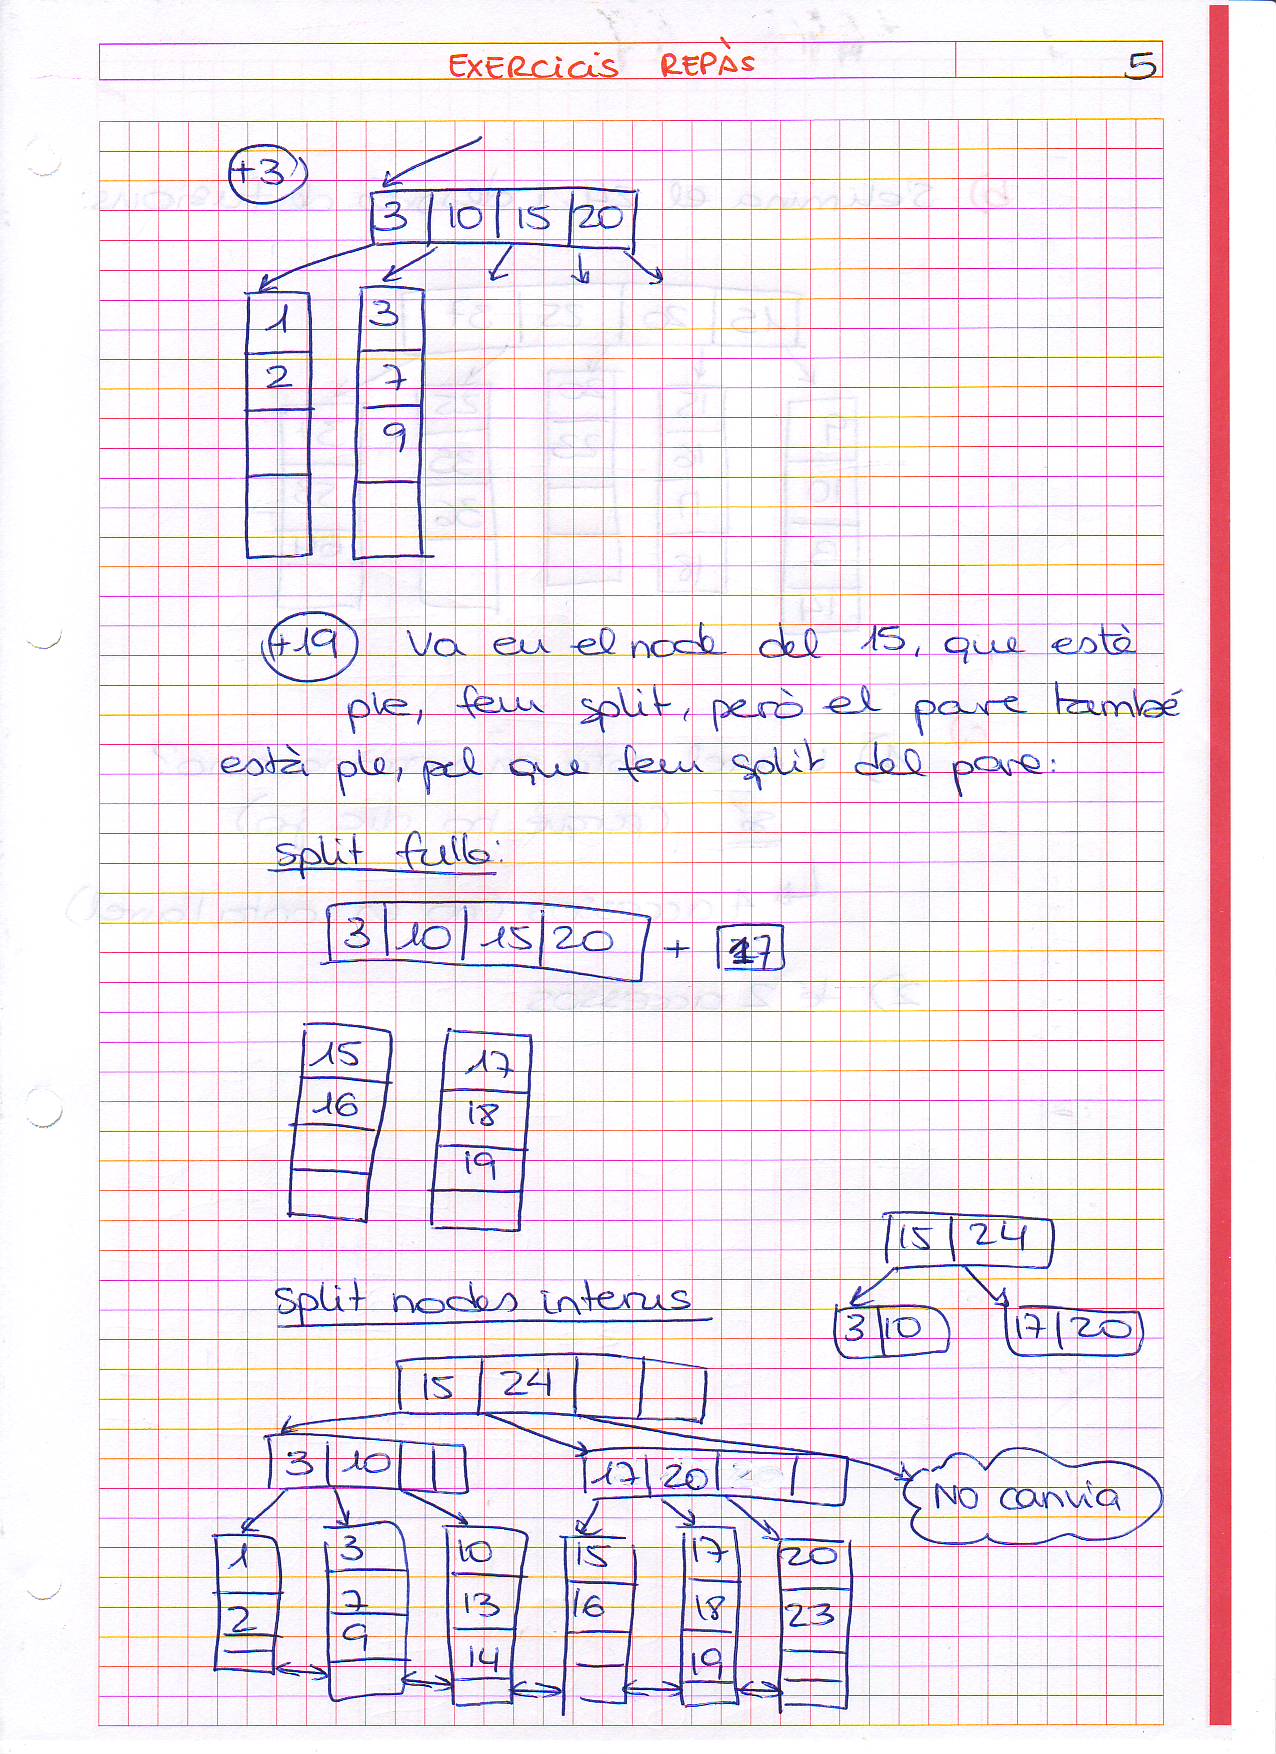 EXERCICIS REPÀS 5
+3
3 10 15 20
1 3
2 7
9
+19 Va en el node del 15, que està
ple, fem split, però el pare també
està ple, pel que fem split del pare:
split fulla:
3 10 15 20 + 17
15 17
16 18
19
15 24
split nodes interns
3 10 17 20
15 24
3 10 17 20 No canvia
1 3 10 15 17 20
2 7 13 16 18 23
9 14 19